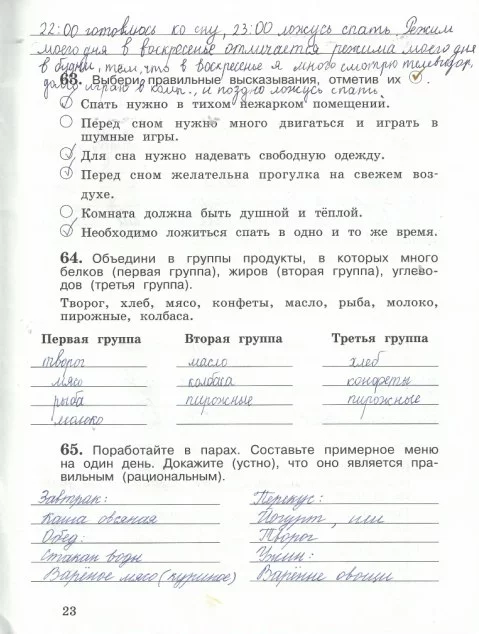 22:00 готовлюсь ко сну, 23:00 ложусь спать. Режим
моего дня в воскресенье отличается режима моего дня
в будни, тем, что в воскресенье я много смотрю телевизор,
63. Выбери правильные высказывания, отметив их ✓.
долго играю в комп., и поздно ложусь спать.
Спать нужно в тихом нежарком помещении.
Перед сном нужно много двигаться и играть в
шумные игры.
Для сна нужно надевать свободную одежду.
Перед сном желательна прогулка на свежем воз-
духе.
Комната должна быть душной и тёплой.
Необходимо ложиться спать в одно и то же время.
64. Объедини в группы продукты, в которых много
белков (первая группа), жиров (вторая группа), углево-
дов (третья группа).
Творог, хлеб, мясо, конфеты, масло, рыба, молоко,
пирожные, колбаса.
Первая группа Вторая группа Третья группа
творог масло хлеб
мясо колбаса конфеты
рыба пирожные пирожные
молоко
65. Поработайте в парах. Составьте примерное меню
на один день. Докажите (устно), что оно является пра-
вильным (рациональным).
Завтрак: Перекус:
Каша овсяная Йогурт, или
Обед: Творог
Стакан воды Ужин:
Варёное мясо (куриное) Варёные овощи
23